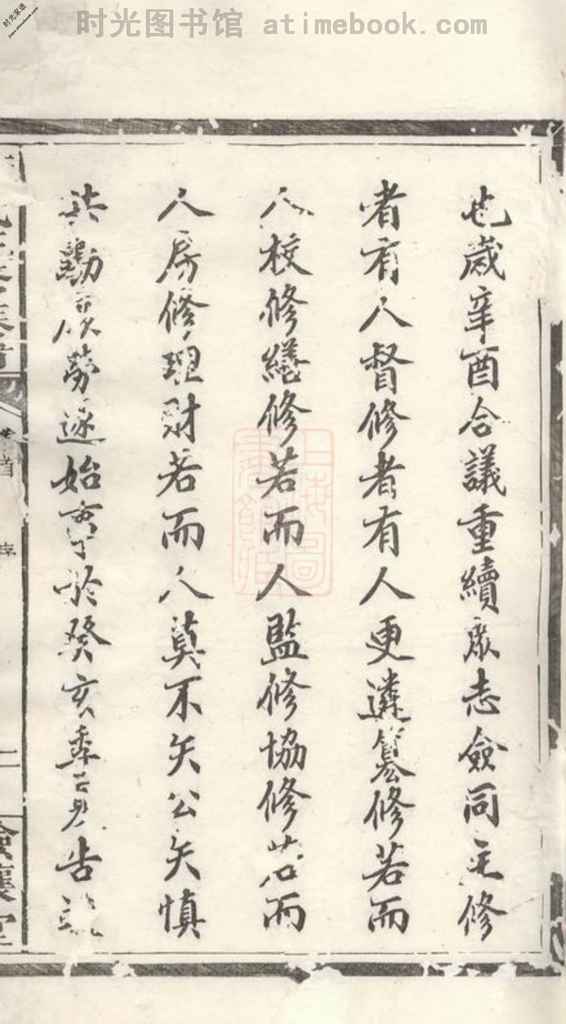 时光图书馆 atimebook.com
也歲辛酉合議重續眾志僉同主修
者有人督修者有人更遴纂修若而
人校修繕修若而人監修協修若而
人房修理財若而人莫不矢公矢慎
共勷厥勞遂始事於癸亥季 告
卷首
序